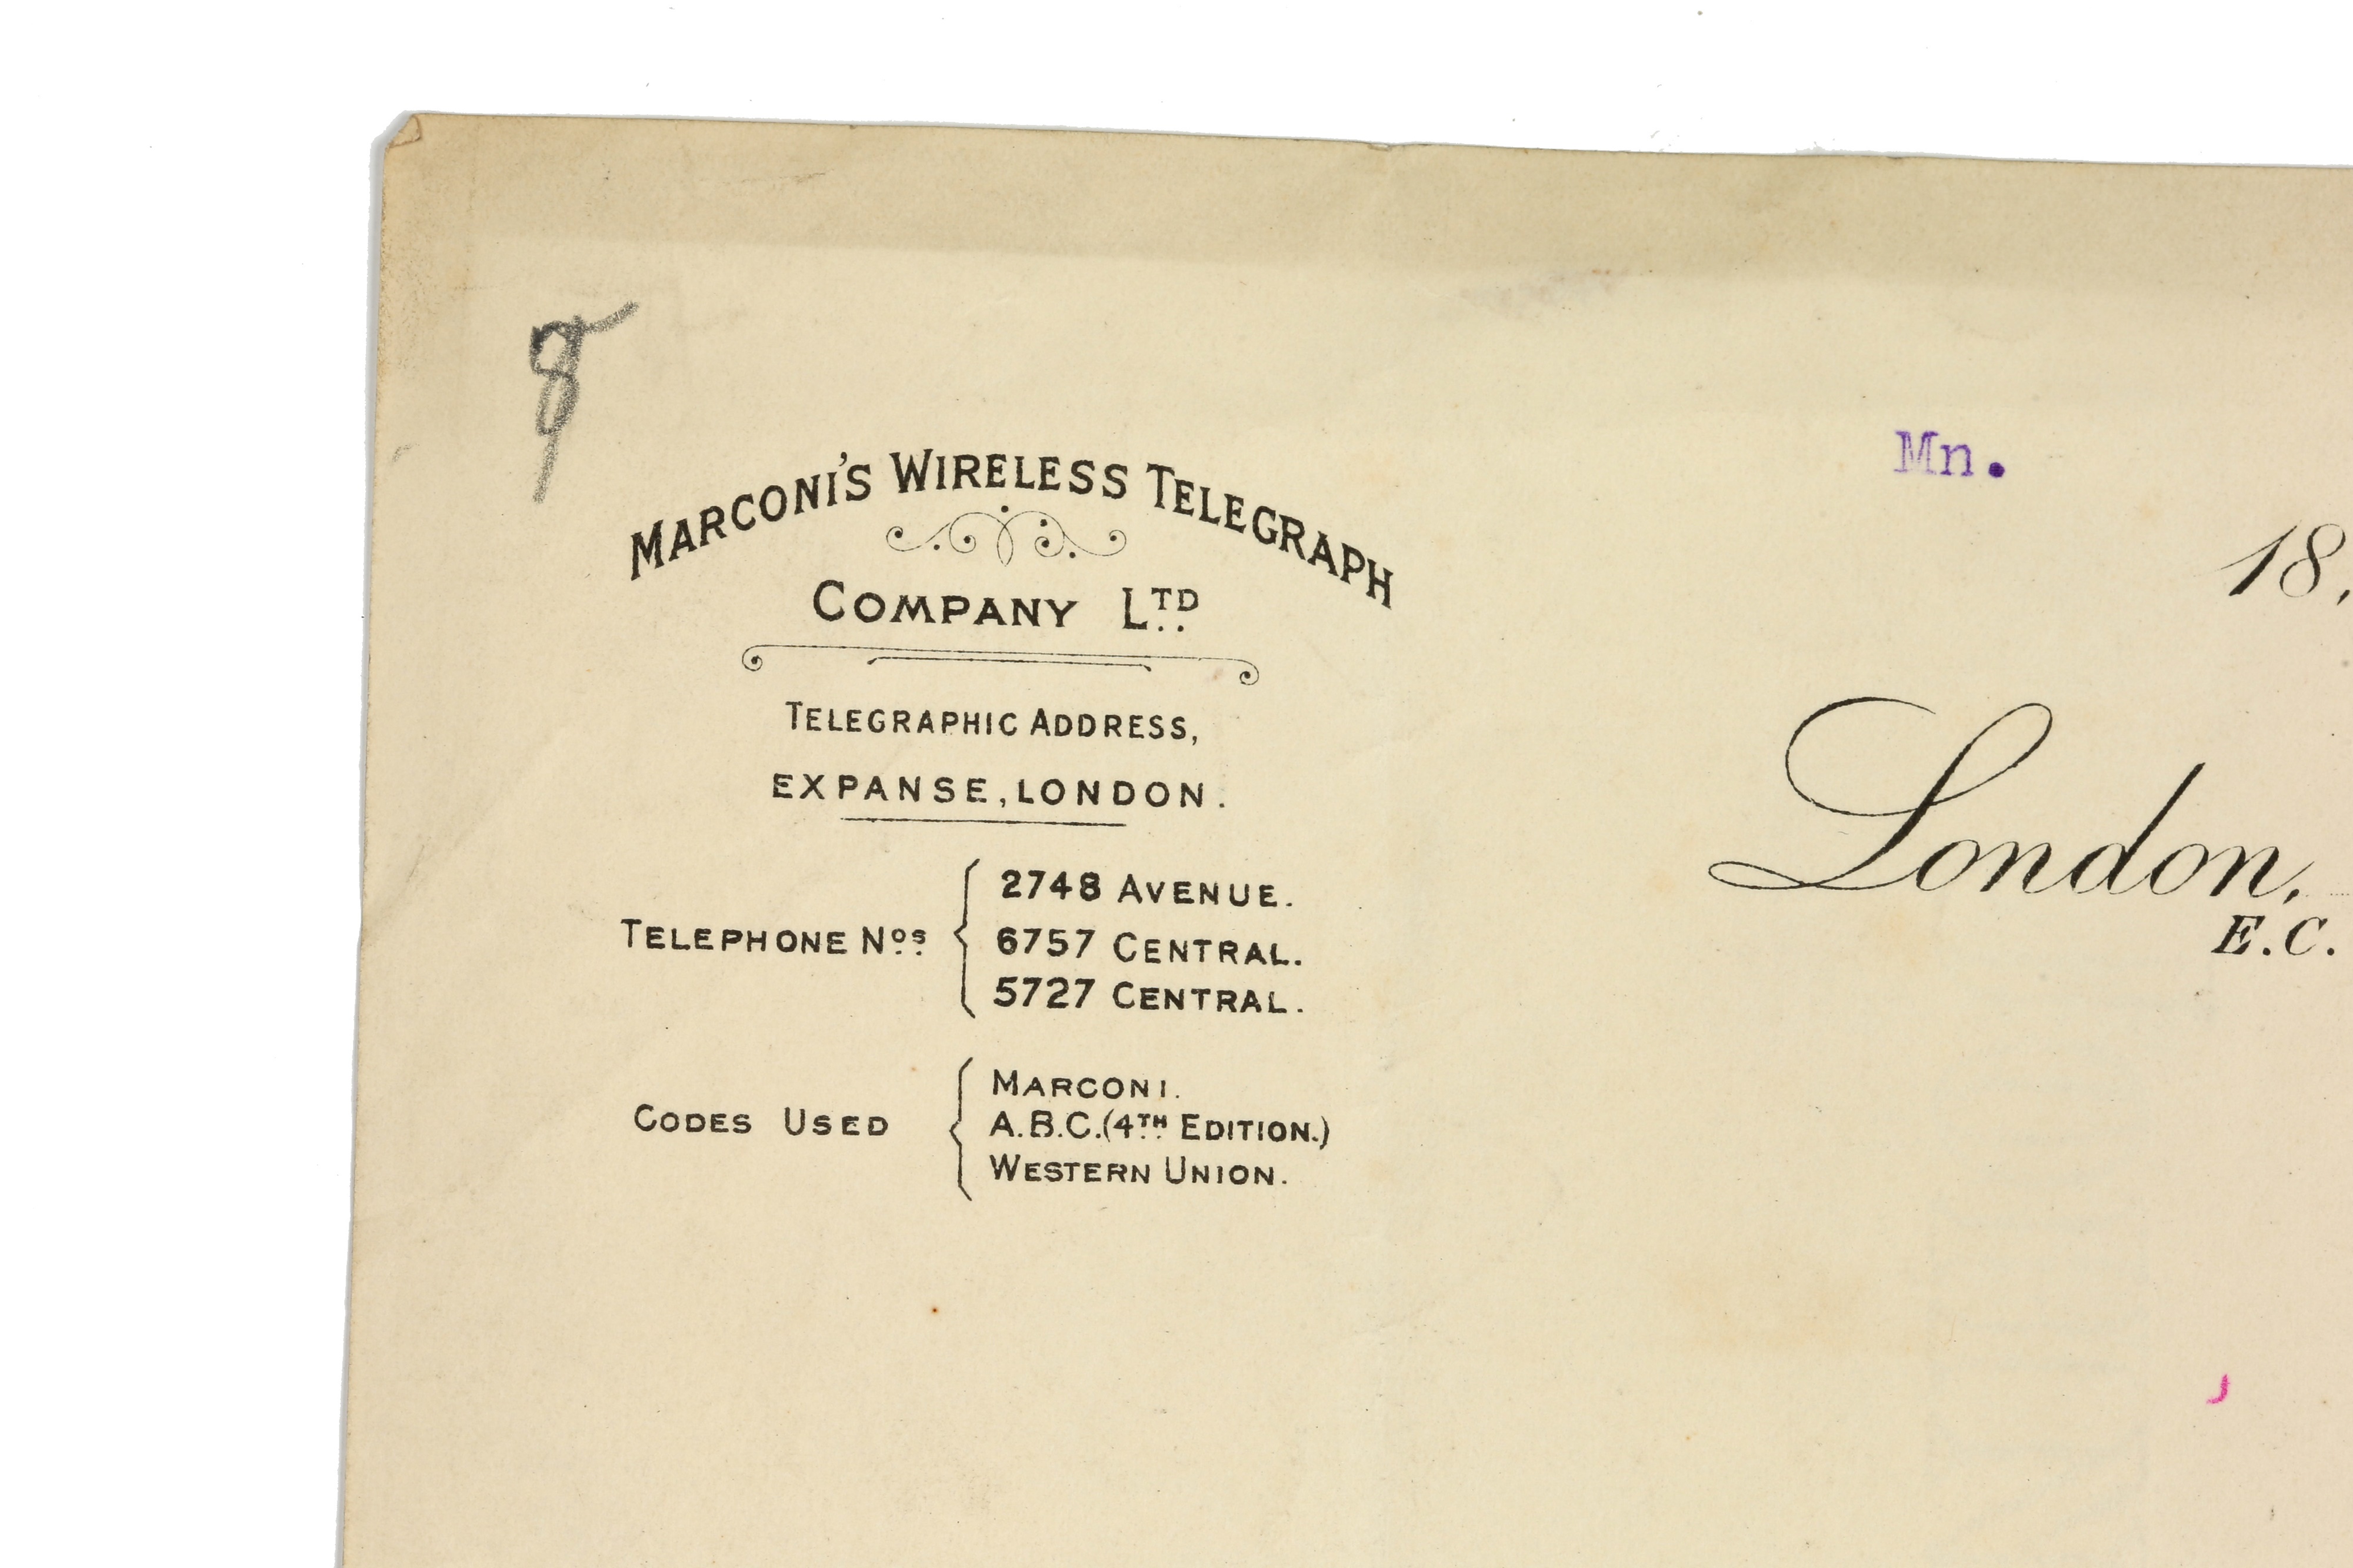 8
Mn.
MARCONI'S WIRELESS TELEGRAPH
COMPANY LTD.
18,
TELEGRAPHIC ADDRESS,
EXPANSE, LONDON.
London,
E.C.
TELEPHONE Nos.
2748 AVENUE.
6757 CENTRAL.
5727 CENTRAL.
CODES USED
MARCONI.
A.B.C. (4TH EDITION.)
WESTERN UNION.